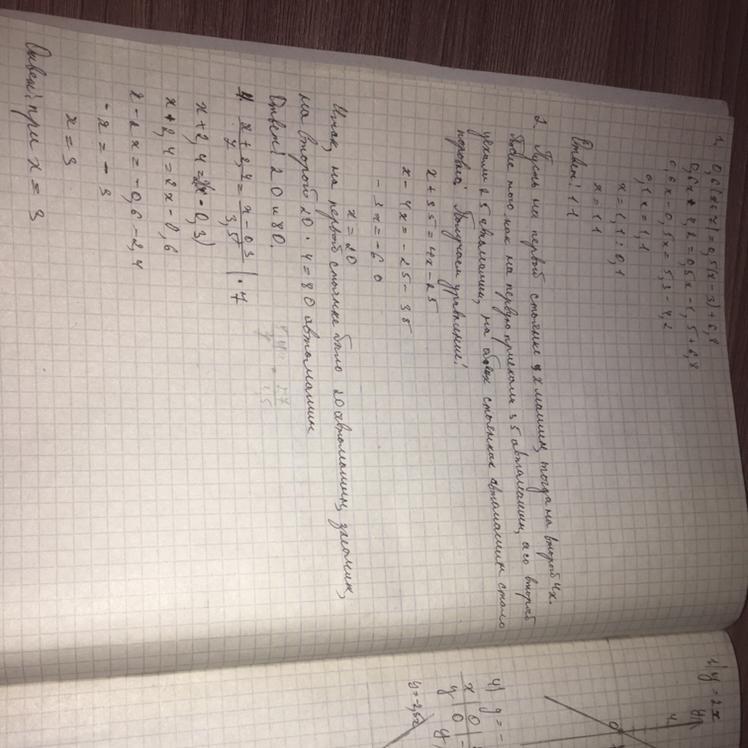 1. 0,6(x+7)=0,5(x-3)+6,8
0,6x+4,2=0,5x-1,5+6,8
0,6x-0,5x=5,3-4,2
0,1x=1,1
x=1,1:0,1
x=11
Ответ: 11
2. Пусть на первой стоянке x машин, тогда на второй 4x.
После того как на первую приехали 35 автомашин, а со второй
уехали 25 автомашин, на обеих стоянках автомашин стало
поровну. Получаем уравнение:
x+35=4x-25
x-4x=-25-35
-3x=-60
x=20
Итак, на первой стоянке было 20 автомашин, значит,
на второй 20·4=80 автомашин
Ответ: 20 и 80
4. x+2,4/7=x-0,3/3,5 |·7
x+2,4=2(x-0,3)
x+2,4=2x-0,6
x-2x=-0,6-2,4
-x=-3
x=3
Ответ: при x=3
1) y=2x
4
0
4) y=-
x 0
y 0
y=-2,5x